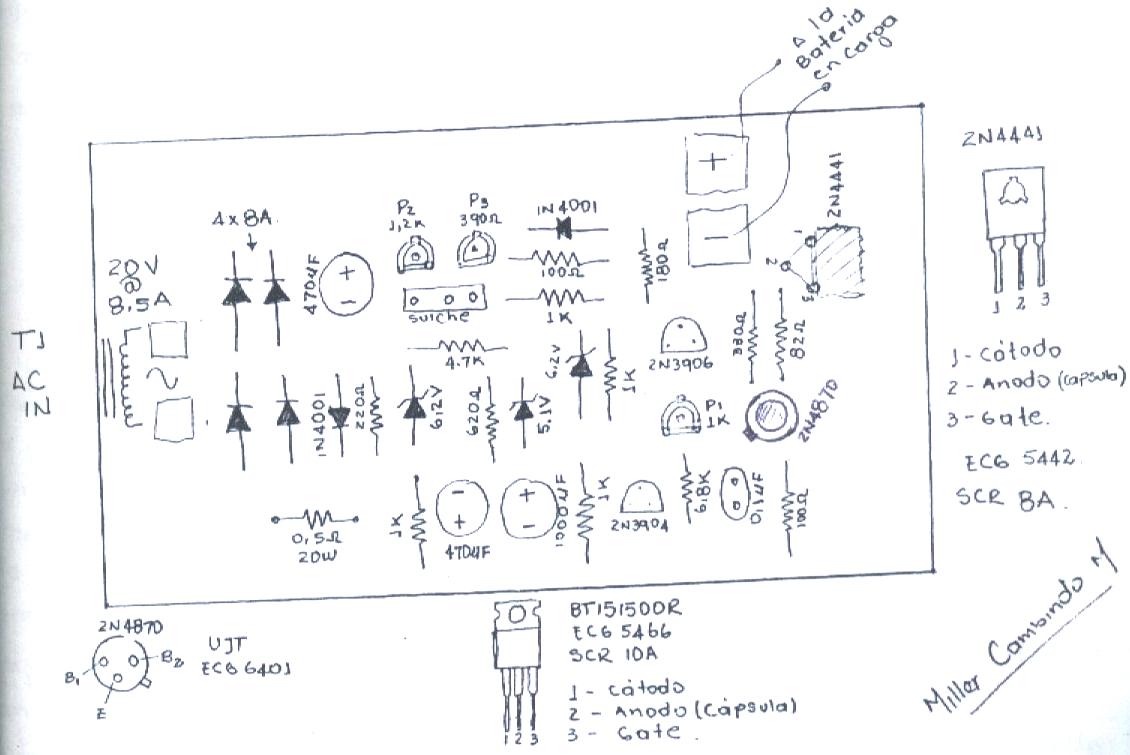 Δ la
Bateria
en carga
2N4441
2N4441
4x8A
P2
1,2K
P3
390Ω
1N4001
100Ω
1K
180Ω
+
−
1
2
3
20V
@
8.5A
470uF
+
−
suiche
4.7K
6,2V
1K
2N3906
330Ω
82Ω
1 2 3
T1
AC
IN
1N4001
220Ω
6,2V
620Ω
5.1V
P1
1K
2N4870
1- Cátodo
2- Anodo (capsula)
3- Gate.
ECG 5442
SCR 8A.
0,5Ω
20W
1K
−
+
470uF
+
−
1000uF
1K
2N3904
6,8K
0,1uF
100Ω
2N4870
B1
B2
E
UJT
ECG 6401
BT151500R
ECG 5466
SCR 10A
1 - Cátodo
2 - Anodo (Cápsula)
3 - Gate.
1 2 3
Millar Cambindo M